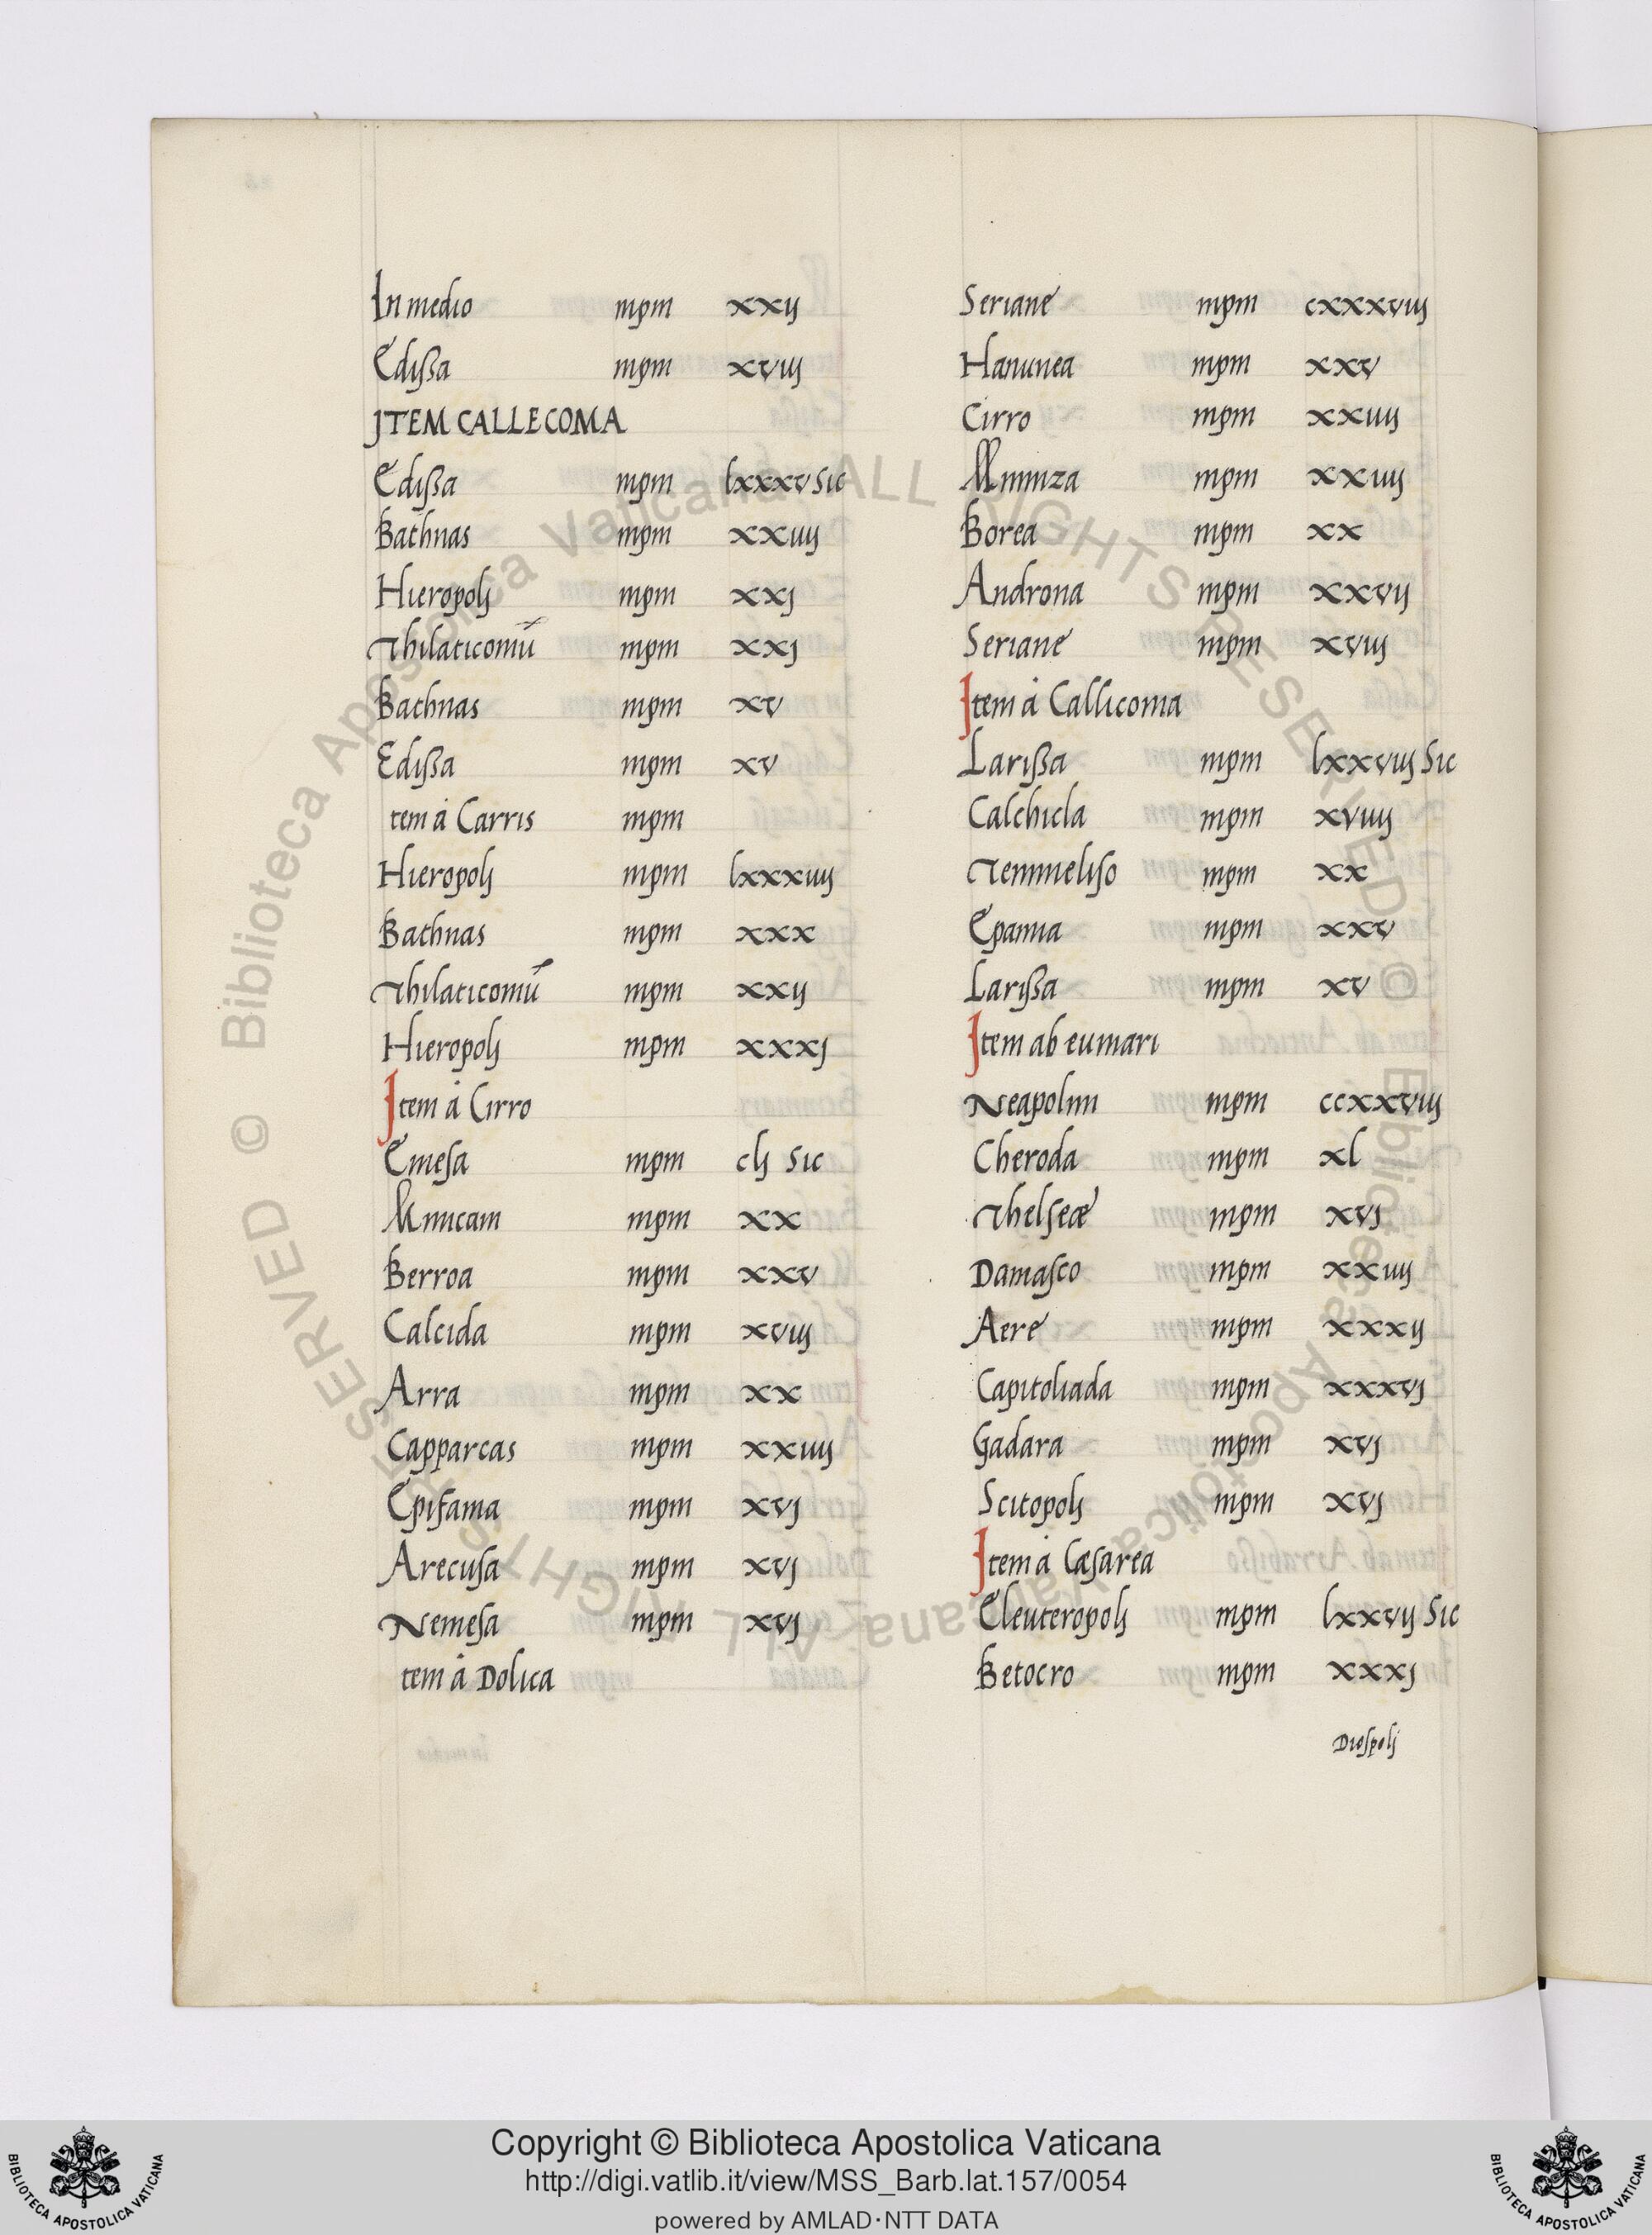 In medio mpm xxij
Edissa mpm xviij
JTEM CALLECOMA
Edissa mpm lxxxv sic
Bathnas mpm xxiiij
Hieropolj mpm xxj
Thilaticomū mpm xxj
Bathnas mpm xv
Edissa mpm xv
tem á Carris mpm
Hieropolj mpm lxxxiiij
Bathnas mpm xxx
Thilaticomū mpm xxij
Hieropolj mpm xxxj
Jtem á Cirro
Emesa mpm clj sic
Minicam mpm xx
Berroa mpm xxv
Calcida mpm xviij
Arra mpm xx
Capparcas mpm xxiiij
Epifania mpm xvj
Arecusa mpm xvj
Nemesa mpm xvj
tem á Dolica
Seriane mpm cxxxviij
Hanunea mpm xxv
Cirro mpm xxiiij
Minniza mpm xxiiij
Borea mpm xx
Androna mpm xxvij
Seriane mpm xviij
Jtem á Callicoma
Larissa mpm lxxviij sic
Calchicla mpm xviiij
Temmeliso mpm xx
Epamia mpm xxv
Larissa mpm xv
Jtem ab eumari
Neapolim mpm ccxxviij
Cheroda mpm xl
Thelseæ mpm xvj
Damasco mpm xxiiij
Aere mpm xxxij
Capitoliada mpm xxxvj
Gadara mpm xvj
Scitopolj mpm xvj
Jtem á Cæsarea
Eleuteropolj mpm lxxvij sic
Betocro mpm xxxj
Diospolj
Copyright © Biblioteca Apostolica Vaticana
http://digi.vatlib.it/view/MSS_Barb.lat.157/0054
powered by AMLAD·NTT DATA
BIBLIOTECA APOSTOLICA VATICANA
BIBLIOTECA APOSTOLICA VATICANA
© Biblioteca Apostolica Vaticana ALL RIGHTS RESERVED © Biblioteca Apostolica Vaticana ALL RIGHTS RESERVED